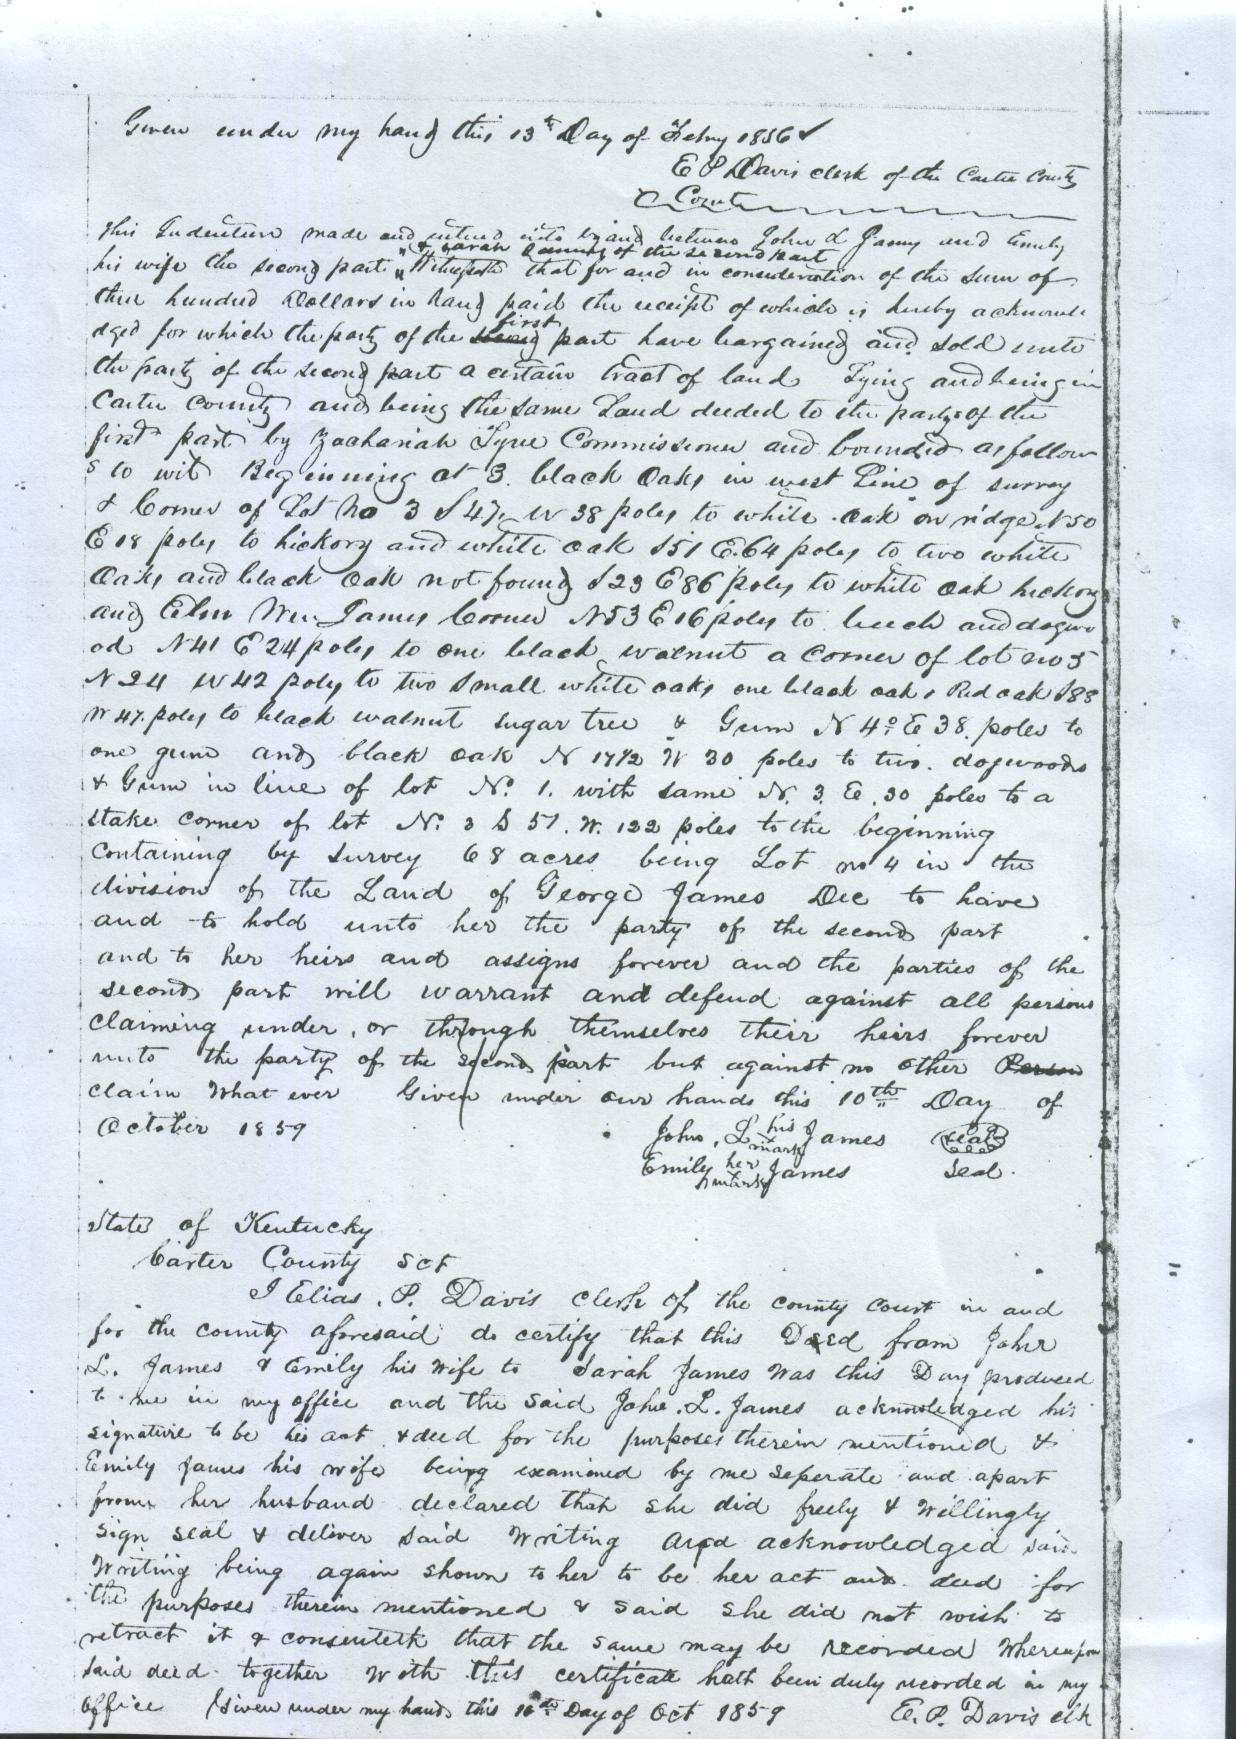 Given under my hand this 13th Day of Febry 1856
E P Davis clerk of the Carter County
Court
This Indenture made and entered into by and between John L James and Emily
& Sarah James of the second part
his wife the second part Witnesseth that for and in consideration of the sum of
three hundred Dollars in hand paid the receipt of which is hereby acknowle
first
dged for which the party of the part have bargained and sold unto
the party of the second part a certain tract of land Lying and being in
Carter County and being the same Land deeded to the partys of the
first part by Zachariah Tyree Commissioner and bounded as follow
s to wit Beginning at 3 black Oaks in west Line of survey
& Corner of Lot No 3 S 47 W 38 poles to white oak on ridge N 50
E 18 poles to hickory and white oak S 51 E 64 poles to two white
Oaks and black Oak not found S 23 E 86 poles to white oak hickory
and Elm Wm James Corner N 53 E 16 poles to beech and dogwo
od N 41 E 24 poles to one black walnut a corner of lot no 5
N 24 W 42 poles to two small white oaks one black oak & Red oak S 88
W 47 poles to black walnut sugar tree & Gum N 4º E 38 poles to
one gum and black oak N 17½ W 30 poles to two dogwoods
& Gum in line of lot No. 1. with same N. 3 E. 30 poles to a
stake corner of lot No. 3 S 51. W. 122 poles to the beginning
containing by survey 68 acres being Lot no 4 in the
division of the Land of George James Dec to have
and to hold unto her the party of the second part
and to her heirs and assigns forever and the parties of the
second part will warrant and defend against all persons
claiming under, or through themselves theirr heirs forever
unto the party of the second part but against no other Person
claim What ever Given under our hands this 10th Day of
October 1859
John. L his mark James seal
Emily her mark James Seal
State of Kentucky
Carter County Sct
I Elias. P. Davis Clerk of the county court in and
for the county aforesaid do certify that this Deed from John
L. James & Emily his wife to Sarah James was this Day produced
to me in my office and the said John. L. James acknowledged his
signature to be his act & deed for the purposes therein mentioned &
Emily James his wife being examined by me seperate and apart
from her husband declared that she did freely & Willingly
sign seal & deliver said Writing and acknowledged said
Writing being again shown to her to be her act and deed for
the purposes therein mentioned & said she did not wish to
retract it & consenteth that the same may be recorded Whereupon
said deed together With this certificate hath been duly recorded in my
office Given under my hand this 10th Day of Oct 1859 E. P. Davis clk